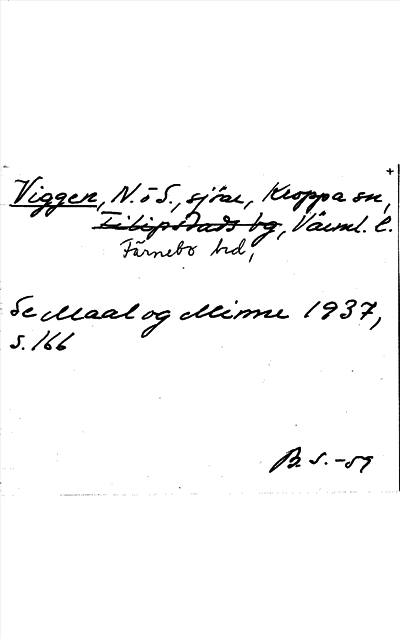 Viggen, N. o S., sjöar, Kroppa sn,
Filipstads bg, Värml. l.
Färnebo hd,
Se Maal og Minne 1937,
s. 166
B. S. -59